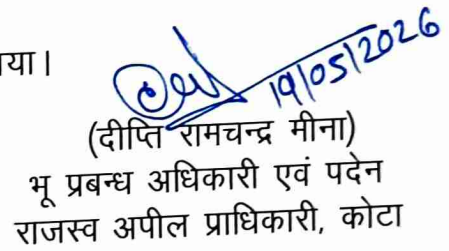 या।
19/05/2026
(दीप्ति रामचन्द्र मीना)
भू प्रबन्ध अधिकारी एवं पदेन
राजस्व अपील प्राधिकारी, कोटा